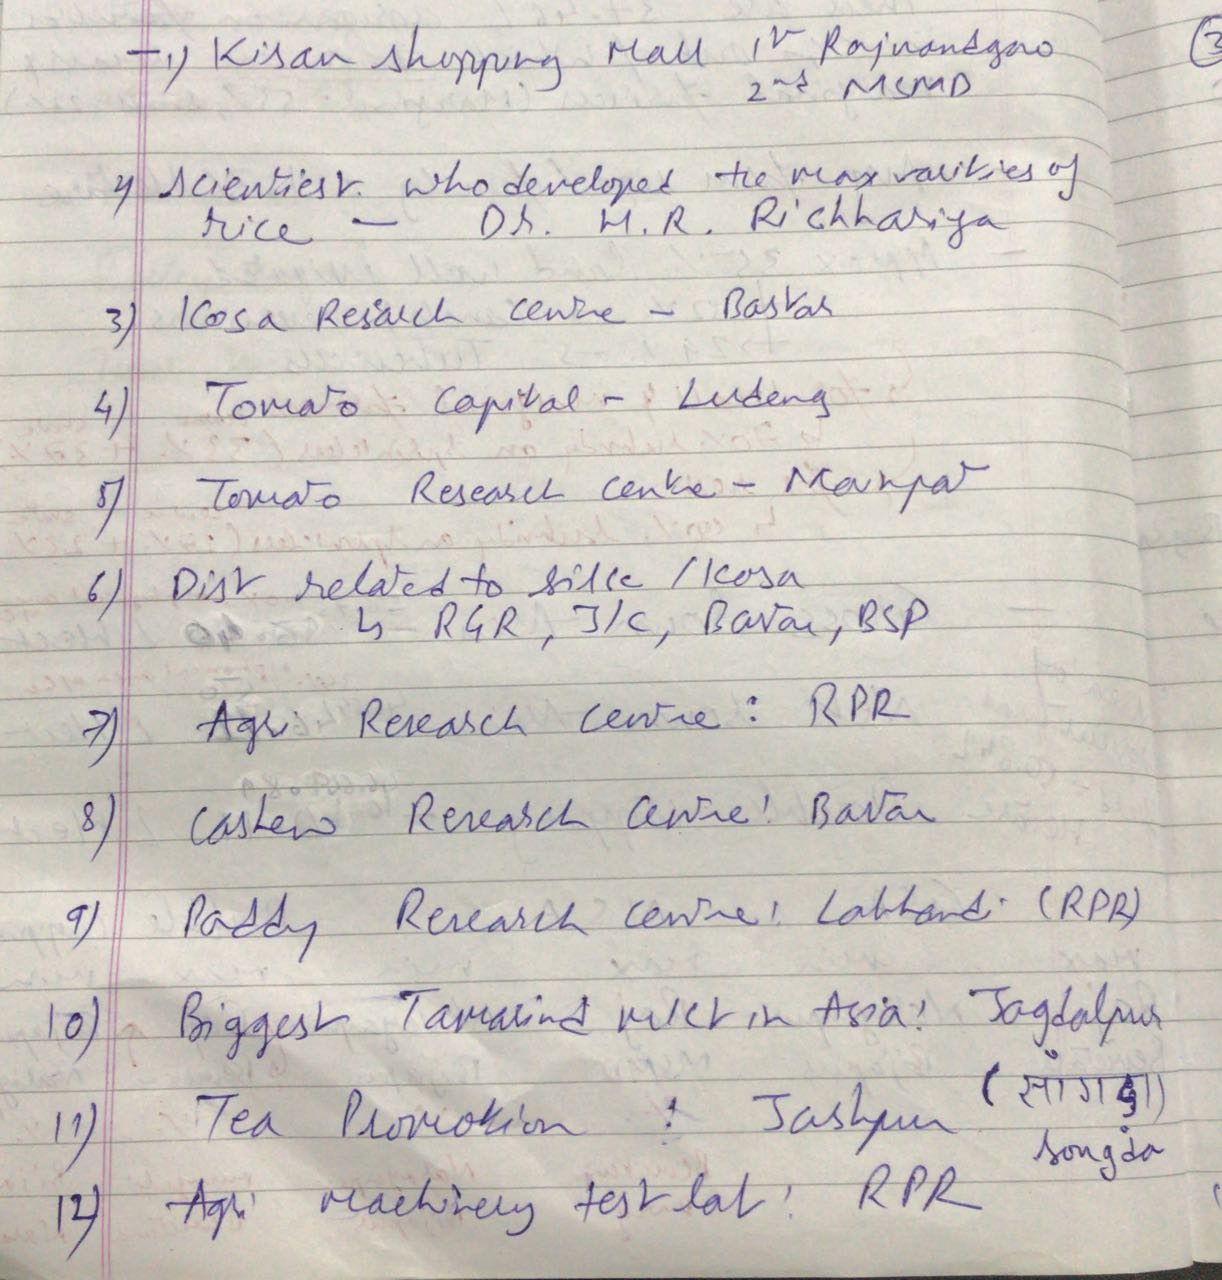 1) Kisan shopping Mall 1st Rajnandgao
2nd MSMD
2) Scientiest who developed the max varities of
rice - Dr. H.R. Richhariya
3) Kosa Resarch centre - Bastar
4) Tomato Capital - Ludeng
5) Tomato Research centre - Mainpat
6) Dist related to silk /Kosa
↳ RGR, J/C, Bastar, BSP
7) Agri Research Centre: RPR
8) Cashew Research Centre: Bastar
9) Paddy Research centre: Labhandi (RPR)
10) Biggest Tamarind mkt in Asia: Jagdalpur
11) Tea Promotion : Jashpur (सोगड़ा)
Songda
12) Agri machinery test lab: RPR